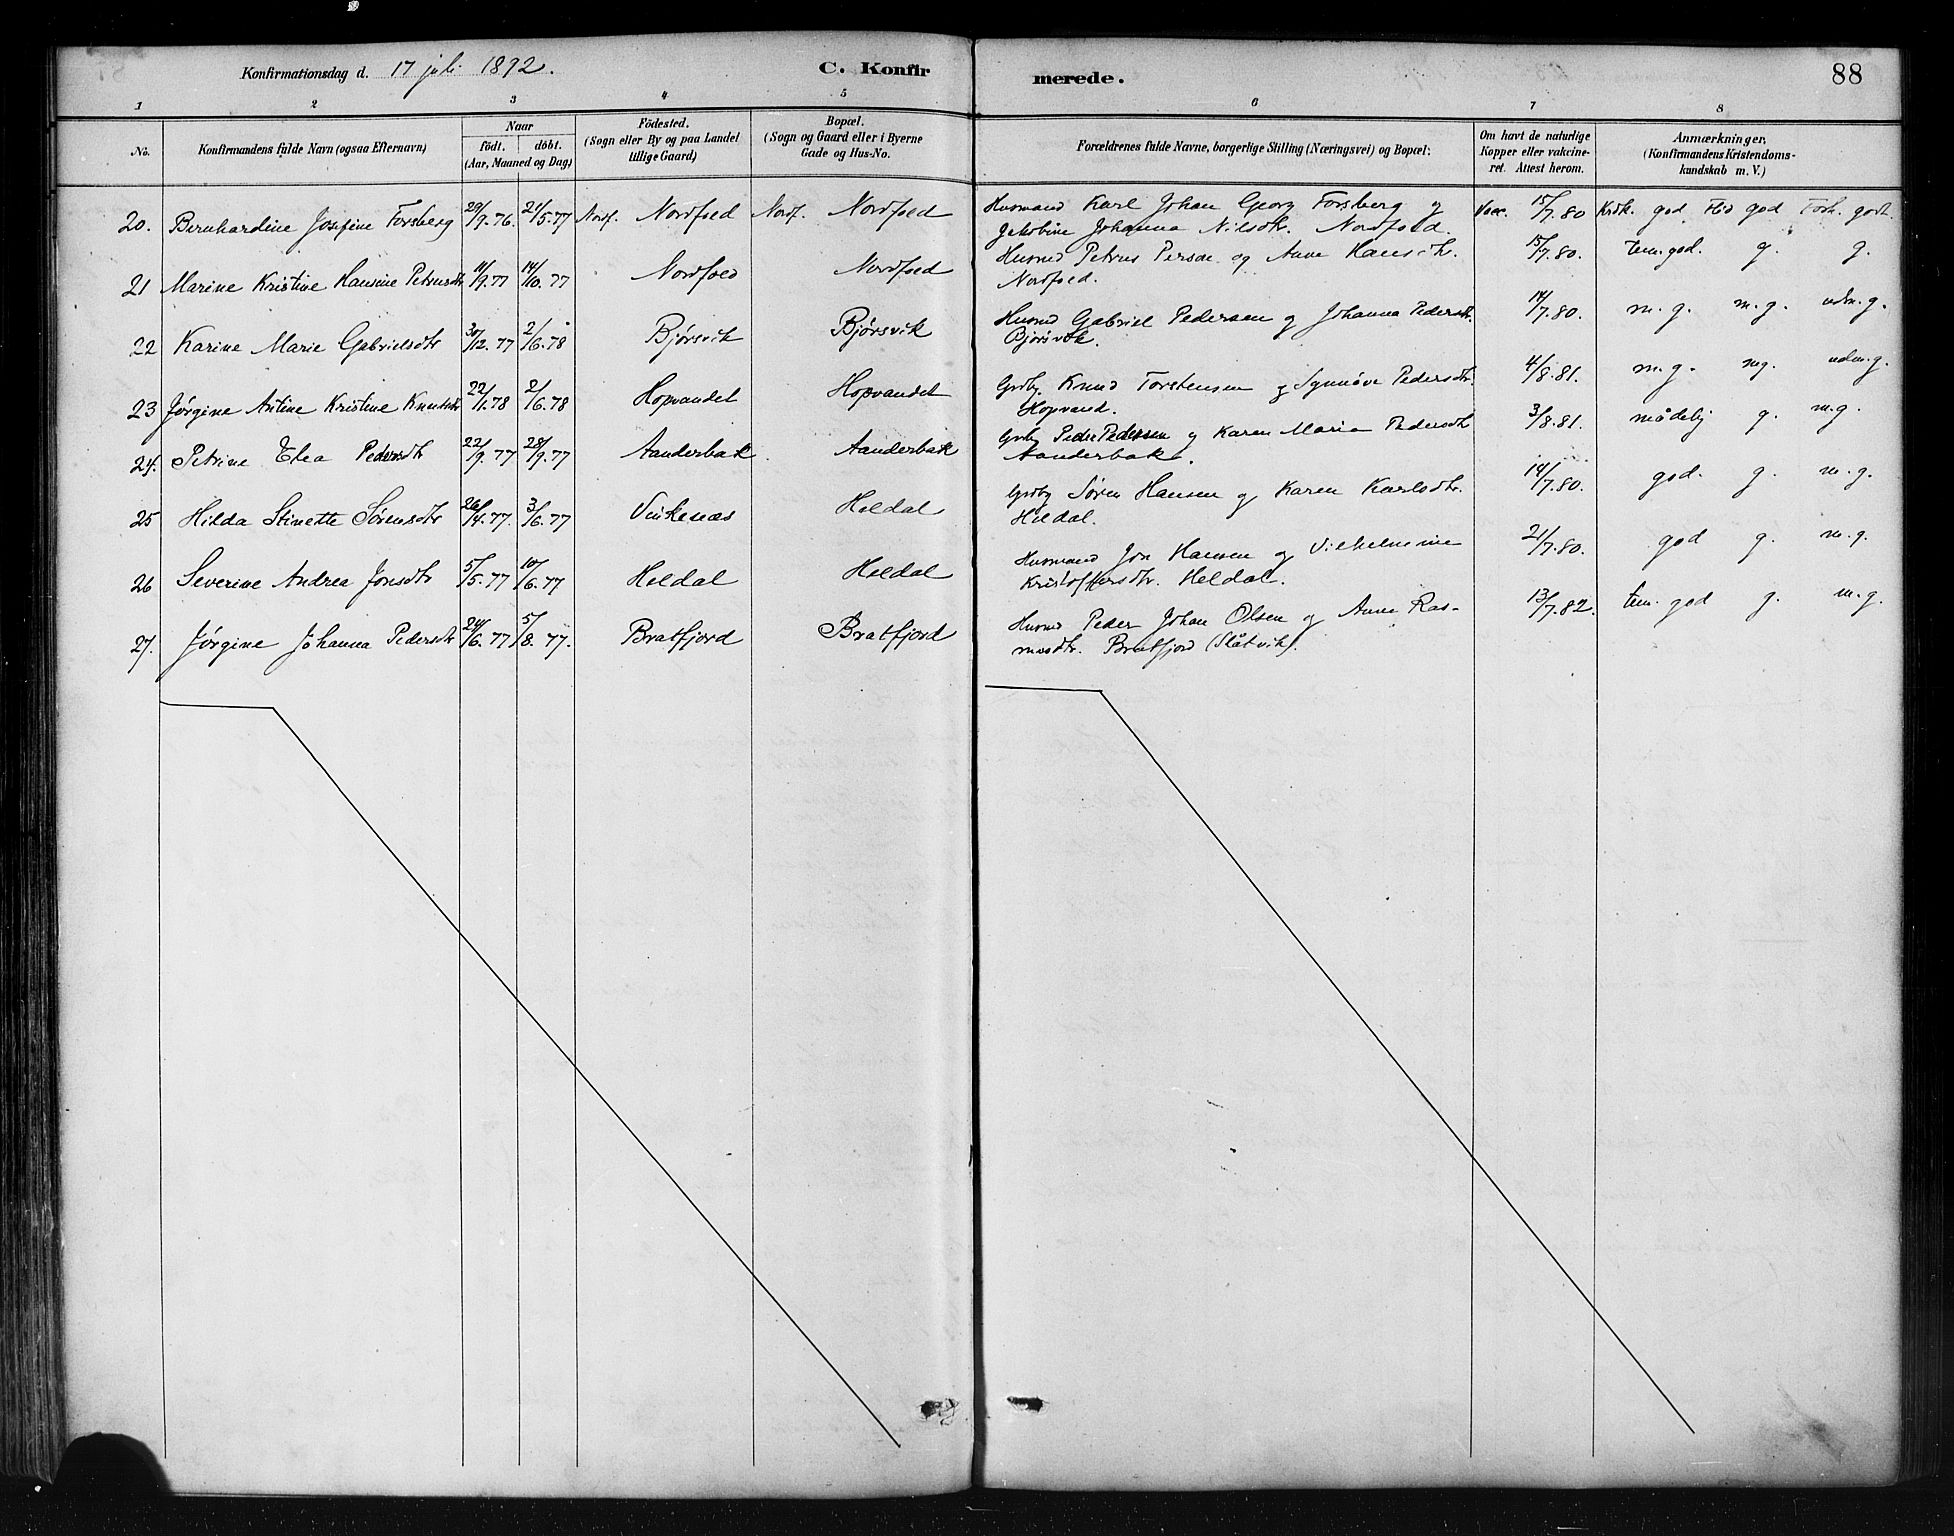 Konfirmationsdag d. 17 juli 1892. C. Konfirmerede. 88
1 2 3 4 5 6 7 8
No. Konfirmandens fulde Navn (ogsaa Efternavn) Naar födt. döbt. (Aar, Maaned og Dag) Födested. (Sogn eller By og paa Landet tillige Gaard) Bopæl. (Sogn og Gaard eller i Byerne Gade og Hus-No. Forældrenes fulde Navne, borgerlige Stilling (Næringsvei) og Bopæl: Om havt de naturlige Kopper eller vakcineret. Attest herom. Anmærkninger, (Konfirmandens Kristendomskundskab m. V.)
20. Bernhardine Josefine Forsberg 29/9.76. 21/5.77 Nordf. Nordfoed Nordf. Nordfoed Husmand Karl Johan Georg Forsberg og Vacc. 15/7.80 Krdk. god Flid god Forh. godt.
Jakobine Johanna Nilsdtr. Nordfoed.
21 Marine Kristine Hansine Petrusdtr 11/9.77 14/10.77 Nordfoed Nordfoed Husmd Petrus Persen og Anne Hansdtr. 15/7.80. tem. god. g. g.
Nordfoed.
22 Karine Marie Gabrielsdtr 30/12.77 2/6.78 Bjørsvik Bjørsvik Husmd Gabriel Pedersen og Johanna Pedersdtr. 14/7.80. m. g. m. g. udm. g.
Bjørsvik.
23 Jørgine Antine Kristine Knudsdtr 22/1.78 2/6.78 Hopvandet Hopvandet Grdbg. Knud Torstensen og Synnøve Pedersdtr. 4/8.81. m. g. mg. udm. g.
Hopvand.
24. Petrine Elea Pedersdtr 22/9.77 28/9.77 Aanderbak. Aanderbak Grdbg Peder Pedersen og Karen Maria Pedersdtr 3/8.81. mådelig g. m. g.
Aanderbak.
25 Hilda Stinette Sørensdtr 26/4.77. 3/6.77 Vinkenæs Heldal Grdbg Søren Hansen og Karen Karlsdtr. 14/7.80. god. g. m. g.
Heldal.
26 Severine Andrea Jonsdtr 5/5.77 10/6.77 Heldal Heldal Husmand Jon Hansen og Vilhelmine 21/7.80. god g. m. g.
Kristoffersdtr. Heldal.
27. Jørgine Johanna Pedersdtr 24/6.77 5/8.77. Bratfjord Bratfjord Husmd Peder Johan Olsen og Anne Ras- 13/7.82. tem. god g. m. g.
musdtr. Bratfjord (Slåtvik).